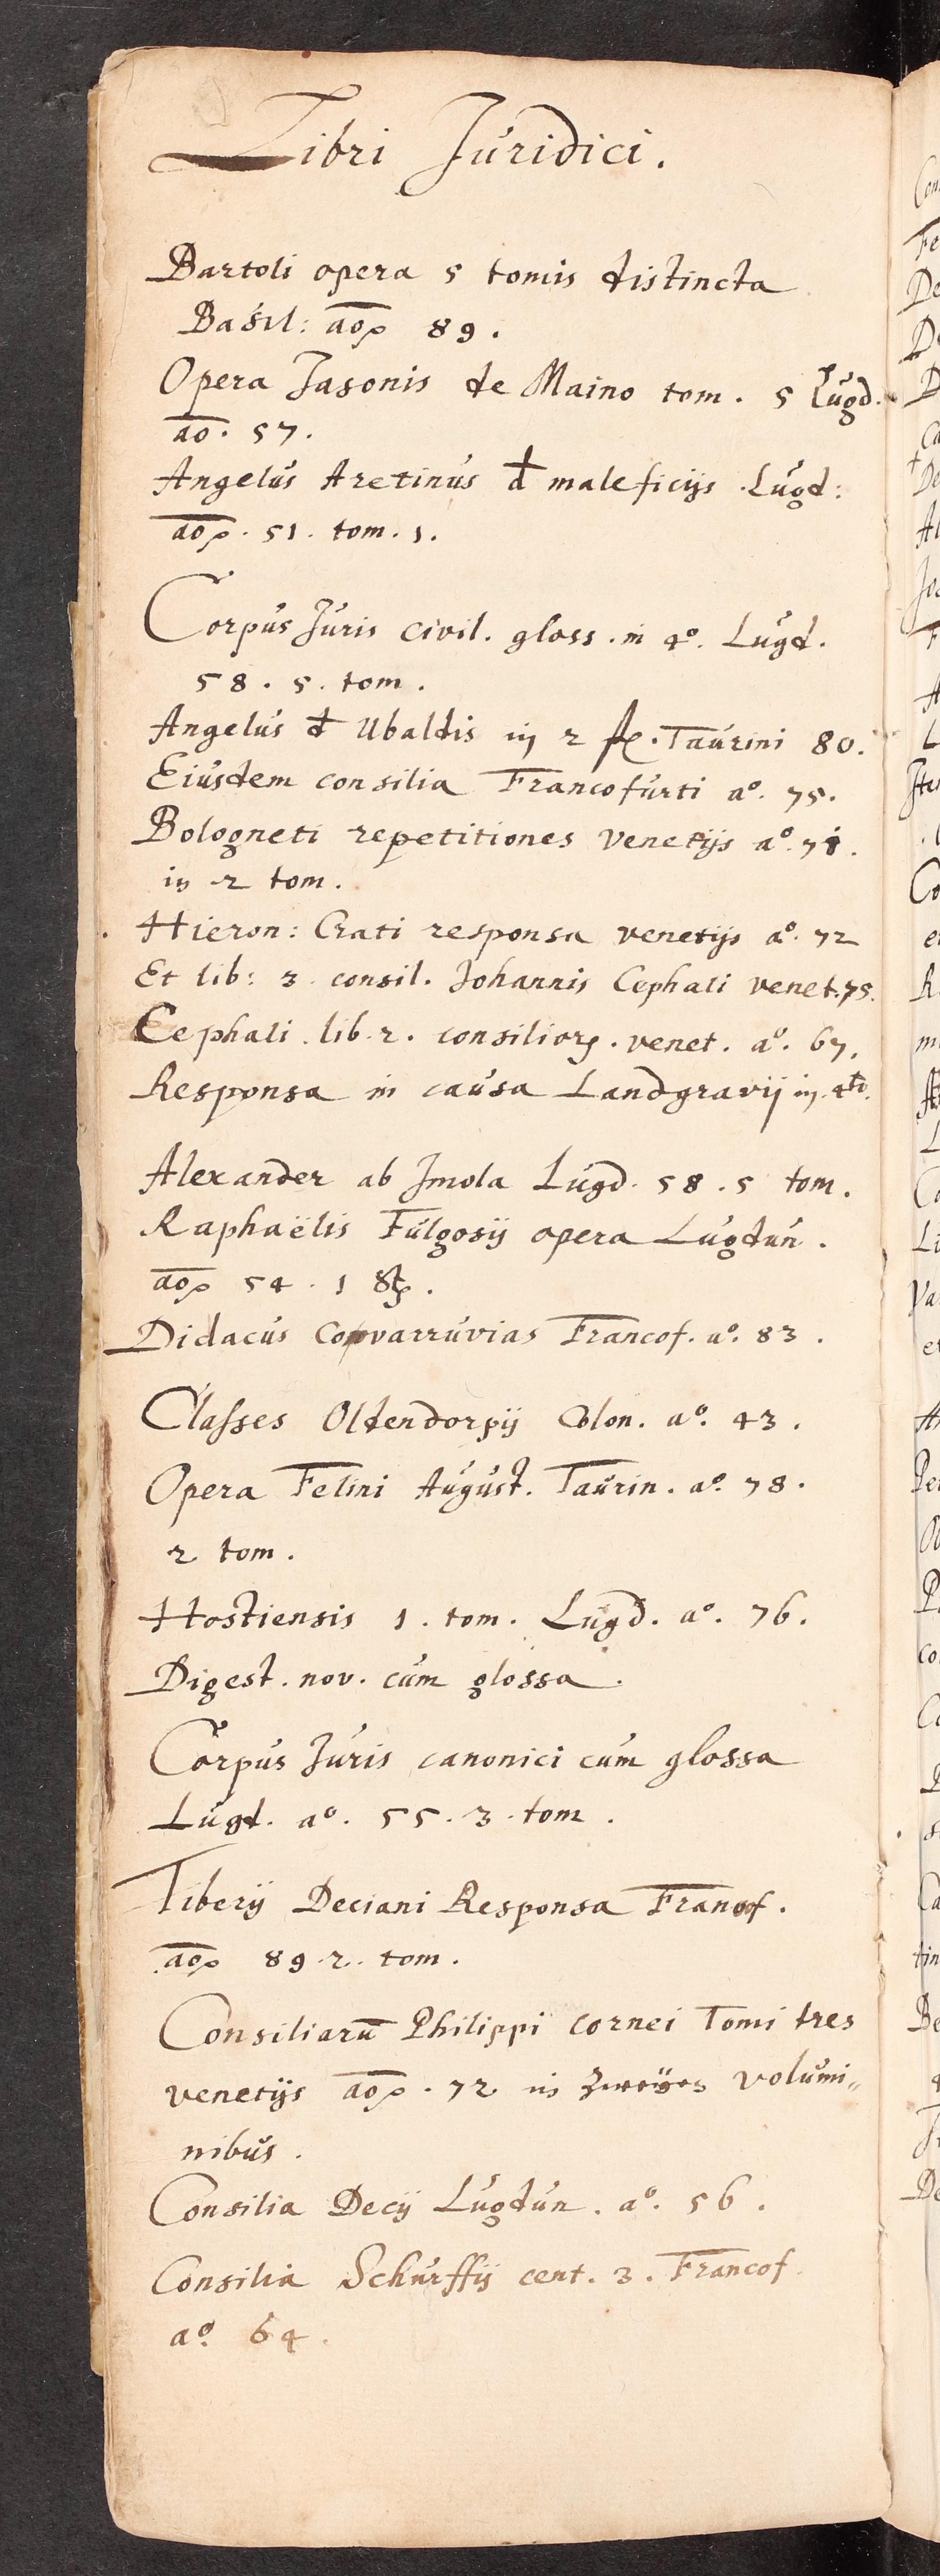 Libri Juridici.
Bartoli opera 5 tomis distincta
Basil: ao 89.
Opera Jasonis de Maino tom. 5 Lugd.
ao. 57.
Angelus Aretinus d maleficijs Lugd:
ao. 51. tom. 1.
Corpus Juris civil. gloss. in 4º. Lugd.
58. 5. tom.
Angelus d Ubaldis in 2 Taurini 80.
Eiusdem consilia Francofurti aº. 75.
Bologneti repetitiones Venetijs aº.
in 2 tom.
Hieron: Grati responsa venetijs aº. 72
Et lib: 3 consil. Johannis Cephali venet. 75.
Cephali lib. 2. consilior. venet. aº. 67.
Responsa in causa Landgravij in 4to.
Alexander ab Jmola Lugd. 58. 5 tom.
Raphaëlis Fulgosij opera Lugdun.
ao 54. 1
Didacus Covarruvias Francof. aº. 83.
Classes Oldendorpij Colon. aº. 43.
Opera Felini August. Taurin. aº. 78.
2 tom.
Hostiensis 1. tom. Lugd. aº. 76.
Digest. nov. cum glossa.
Corpus Juris canonici cum glossa
Lugd. aº. 55. 3. tom.
Tiberij Deciani Responsa Francof.
ao 89. 2. tom.
Consiliarū Philippi cornei Tomi tres
venetijs ao. 72 in volumi„
nibus.
Consilia Decij Lugdun. aº. 56.
Consilia Schurffij cent. 3. Francof.
aº. 64.